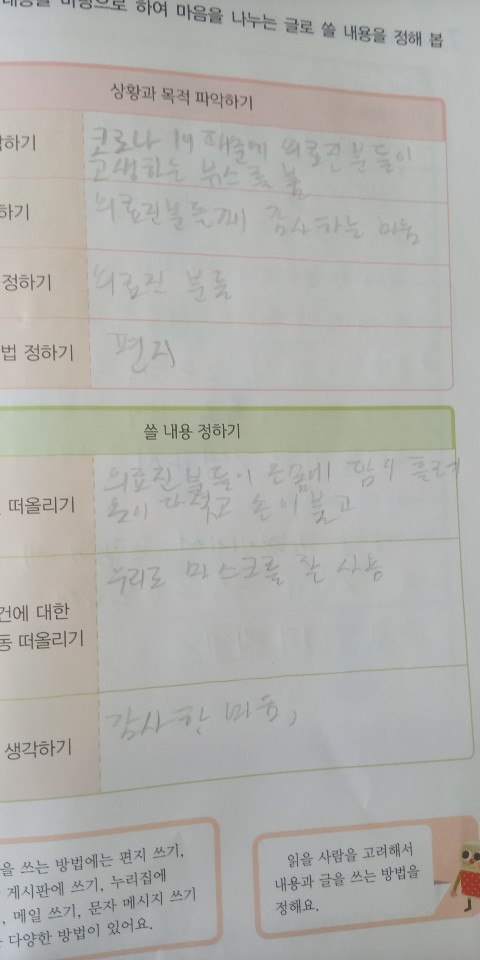 내용을 바탕으로 하여 마음을 나누는 글로 쓸 내용을 정해 봅
상황과 목적 파악하기
하기
코로나 19 때문에 의료진분들이
고생하는 뉴스를 봄
하기
의료진분들께 감사하는 마음
정하기
의료진 분들
법 정하기
편지
쓸 내용 정하기
떠올리기
의료진 분들이 온몸에 땀이 흘려
옷이 다 젖고 손이 붙고
건에 대한
동 떠올리기
우리도 마스크를 잘 사용
생각하기
감사한 마음,
을 쓰는 방법에는 편지 쓰기,
게시판에 쓰기, 누리집에
, 메일 쓰기, 문자 메시지 쓰기
다양한 방법이 있어요.
읽을 사람을 고려해서
내용과 글을 쓰는 방법을
정해요.